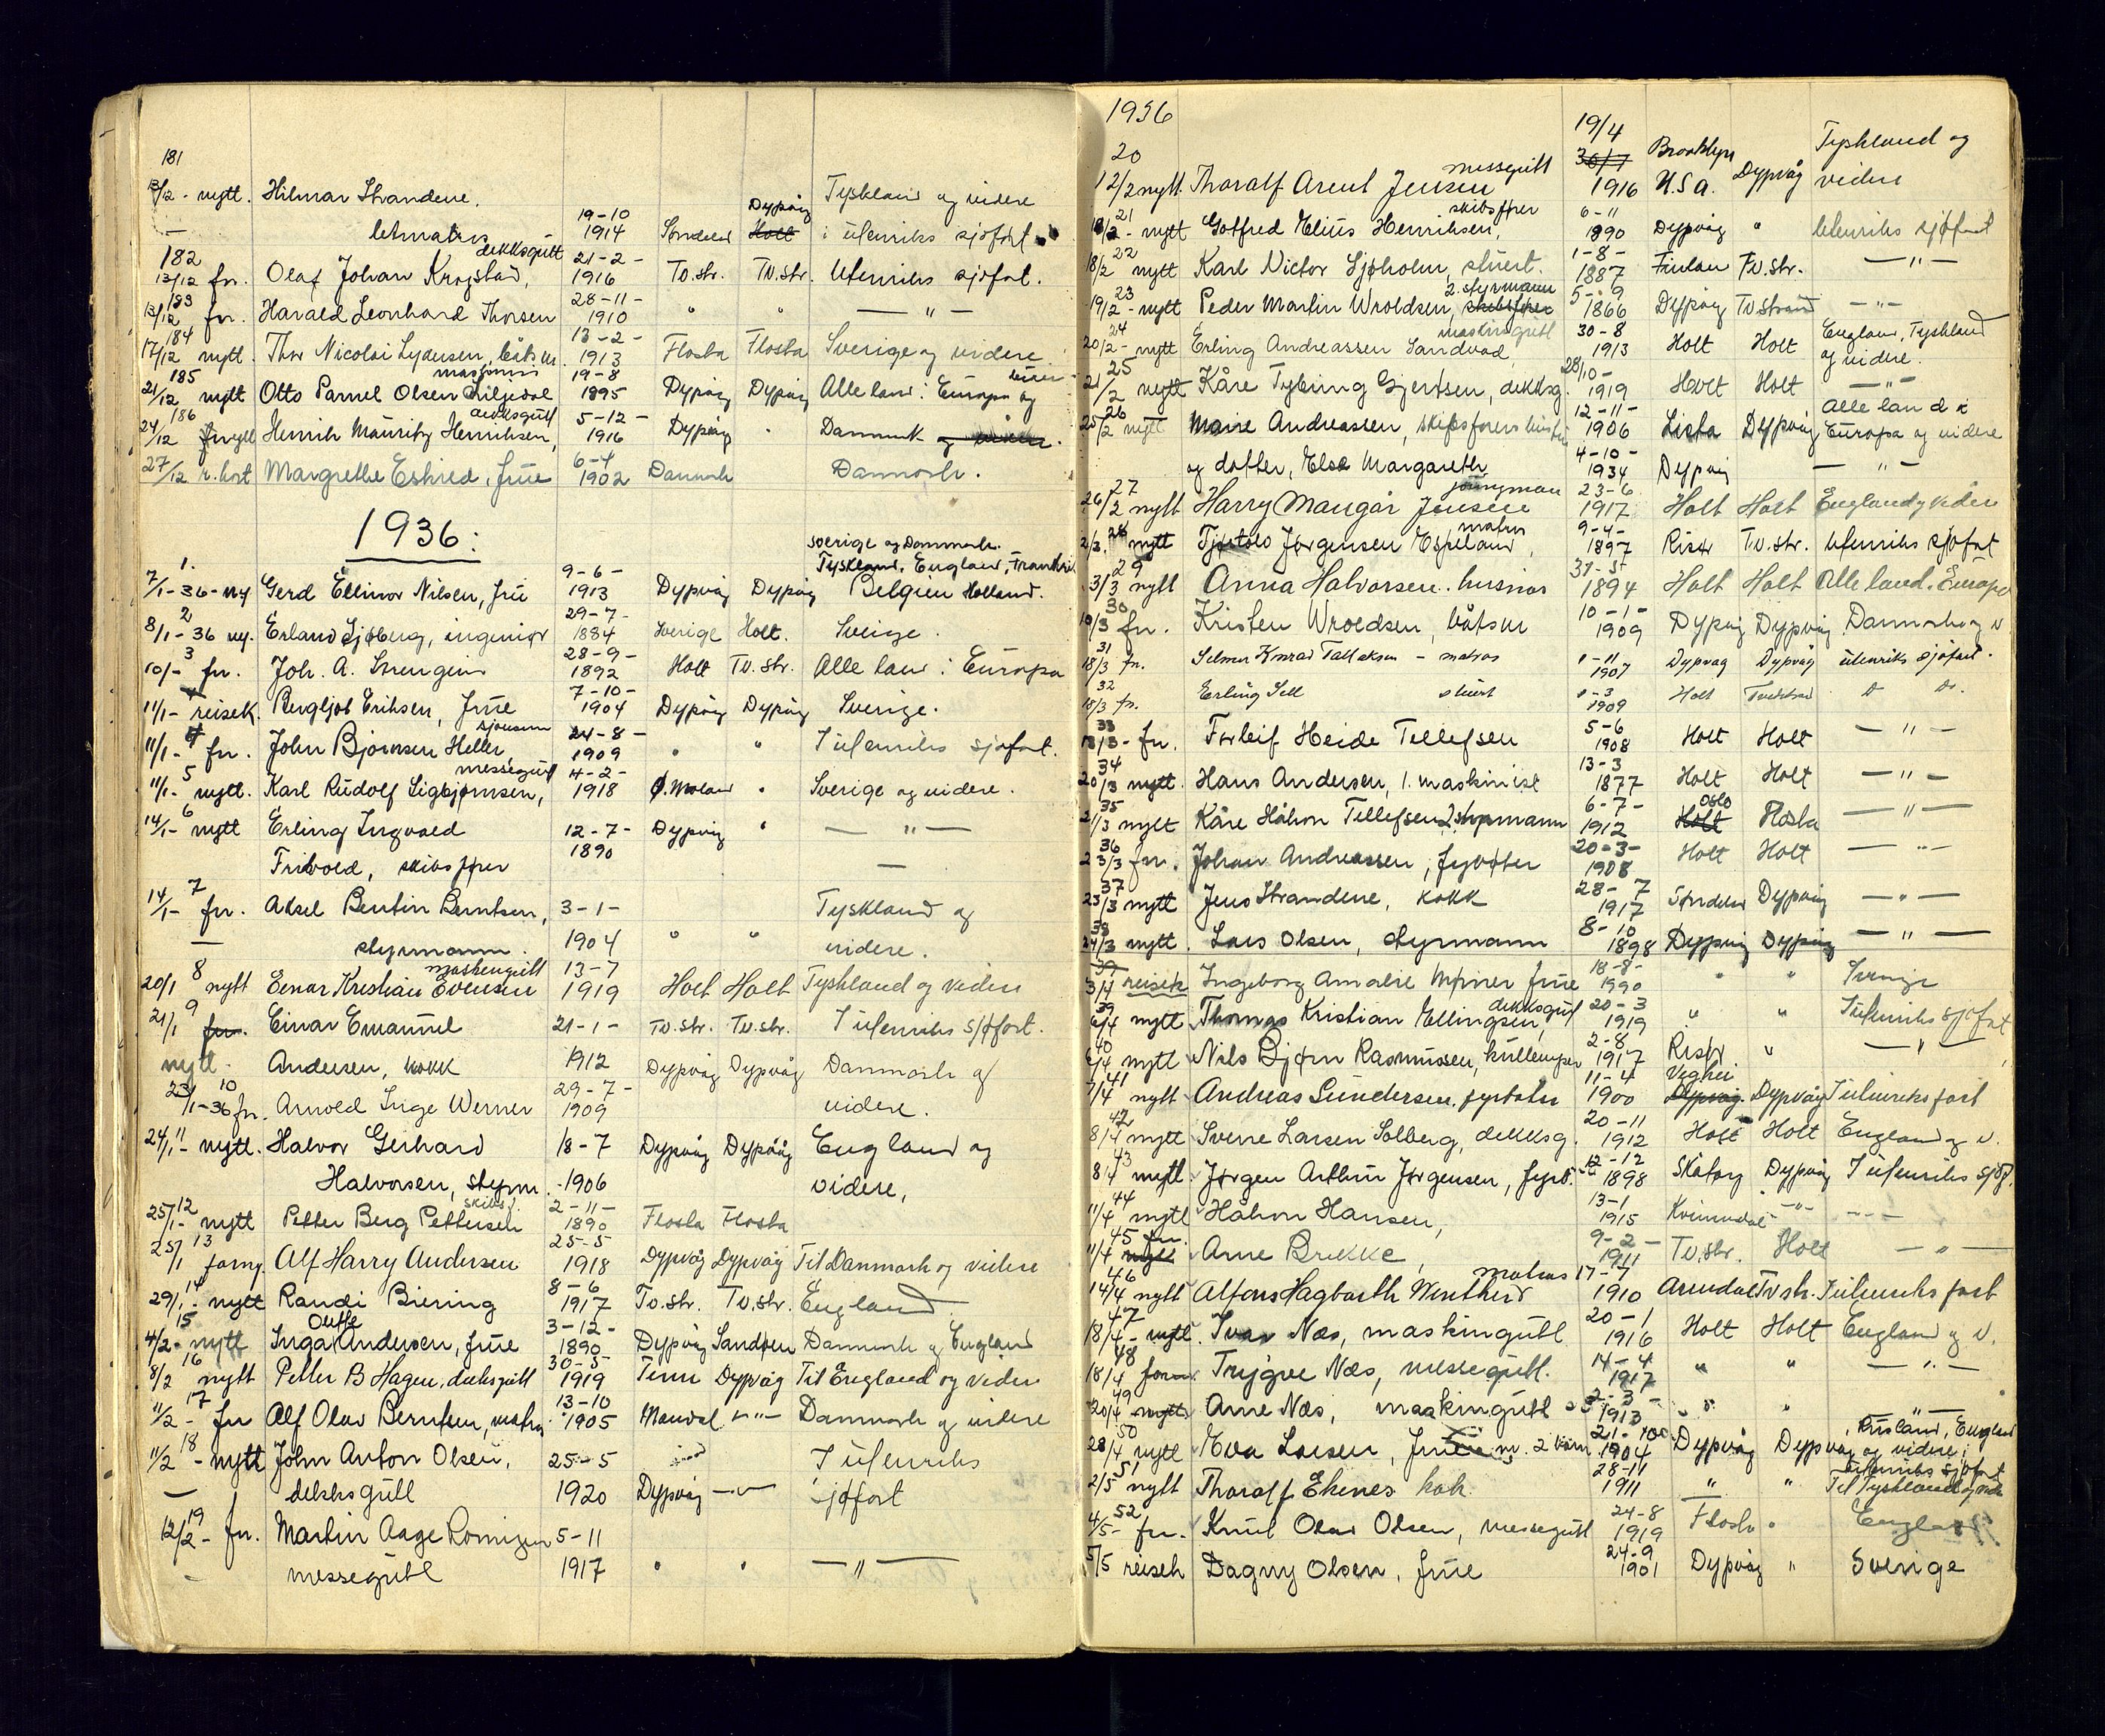 181
12/2 - nytt. Hilmar Strandene. Tyskland og videre
— letmatros 19-10 1914 Søndeled Holt Dypvåg i utenriks sjøfart
182 dekksgutt 21-2-
13/12 fn. Olaf Johan Krogstad, 1916 Tv.str. Tv.str. Utenriks sjøfart.
183 28-11-
13/12 fn. Harald Leonhard Thorsen 1910 " " — " —
184 13-2-
17/12 nytt. Thor Nicolai Lydersen, båtsm. 1913 Flosta Flosta Sverige og videre
185 19-8
21/12 nytt Otto Parnel Olsen 1895 Dypvåg Dypvåg Alle land i Europa og
186 dekksgutt 5-12-
24/12 nytt Henrik Mauritz Henriksen, 1916 Dypvåg " Danmark og videre.
6-4
27/12 r.kort Margrethe Eskred, frue 1902 Danmark Danmark.
1936:
Sverige og Danmark.
1. 9-6- Tyskland, England, Frankrike
7/1-36-ny Gerd Ellinor Nilsen, fru 1913 Dypvåg Dypvåg Belgien Holland.
2 29-7-
8/1-36 ny. Erland Sjøberg, ingeniør 1884 Sverige Holt. Sverige.
3 28-9-
10/- fn. Joh. A. Strengein 1892 Holt Tv.str. Alle land i Europa
7-10-
11/1- reisek. Bergljot Eriksen, frue 1904 Dypvåg Dypvåg Sverige.
4 24-8-
11/1- fn. John Bjørnsen Heller 1909 " " I utenriks sjøfart.
5 messegutt 4-2-
11/1- nytt. Karl Rudolf Sigbjørnsen, 1918 Ø.Moland " Sverige og videre.
6
14/1- nytt Erling Ingvald 12-7- Dypvåg " — " —
Fribold, skibsfører 1890 —
7
14/1- fn. Aksel Bentin Berntsen, 3-1- Tyskland og
— styrmann. 1904 " " videre.
8 maskingutt 13-7
20/1 nytt Einar Kristian Evensen 1919 Holt Holt Tyskland og videre
9
21/1 fn. Einar Emanuel 21-1- Tv.str. Tv.str. I utenriks sjøfart.
nytt. Andersen, kokk 1912 Dypvåg Dypvåg Danmark og
10 29-7-
23/1-36 fn. Arnold Inge Werner 1909 videre.
11
24/1- nytt. Halvor Gerhard 18-7 Dypvåg Dypvåg England og
Halvorsen, styrm. 1906 videre,
12 skibsf. 2-11-
25/1- nytt Petter Berg Pettersen 1890 Flosta Flosta
13 25-5
25/1 forny. Alf Harry Andersen 1918 Dypvåg Dypvåg Til Danmark og videre
14 8-6
29/1- nytt Randi Biering 1917 Tv.str. Tv.str. England
15 Outte 3-12-
4/2- nytt Inga Andersen, frue 1890 Dypvåg Sandøen Danmark og England
16 30-5-
8/2 nytt Petter B Hagen, dekksgutt 1919 Tinn Dypvåg Til England og videre
17 13-10
11/2- fn Alf Olav Berntsen, matros 1905 Mandal — " — Danmark og videre
18
11/2 - nytt John Anton Olsen, 25-5 I utenriks
— dekksgutt 1920 Dypvåg — " — sjøfart
19
12/2- fn. Martin Aage Romigen 5-11
- messegutt 1917 " " — " —
1936
20 messegutt 19/4 30/7 Brooklyn Tyskland og
12/2 nytt. Thoralf Arent Jensen 1916 U.S.A. Dypvåg videre
21 skibsfører 6-11
18/2- nytt Gotfred Elius Henriksen, 1890 Dypvåg " Utenriks sjøfart
22 1-8-
18/2 nytt Karl Victor Sjøholm, stuert. 1887 Finland Tv.str. — " —
23 2. styrmann 5-9
19/2- nytt Peder Martin Wroldsen, skibsfører 1866 Dypvåg Tv.strand — " —
24 maskingutt 30-8 England, Tyskland
20/2- nytt Erling Andreassen Sandvad 1913 Holt Holt og videre.
25 28/10-
21/2 nytt Kåre Tybring Gjertsen, dekksg. 1919 Holt Holt — " —
26 12-11- Alle land i
25/2 nytt Marie Andreassen, skipsførers hustru 1906 Lista Dypvåg Europa og videre
4-10-
og datter, Else Margareth 1934 Dypvåg — " —
27 jungman 23-6
26/2 nytt Harry Mangår Jensen 1917 Holt Holt England og videre
28 matros 9-4-
2/3. nytt Tjøstolv Jørgensen Espeland, 1897 Risør Tv.str. Utenriks sjøfart
29 31-5-
3/3 nytt Anna Halvorsen, husmor 1894 Holt Holt Alle land i Europa
30 10-1-
10/3 fn. Kristen Wroldsen, båtsm 1909 Dypvåg Dypvåg Danmark og v
31 1-11
18/3 fn. Selmer Konrad Tallaksen - matros 1907 Dypvåg Dypvåg utenriks sjøfart.
32 1-3
18/3 fn. Erling Sell stuert 1909 Holt Tvedestrand D Do.
33 5-6
18/3- fn. Torleif Heide Tellefsen 1908 Holt Holt — " —
34 13-3
20/3 nytt. Hans Andersen, 1. maskinist 1877 Holt Holt — " —
35 6-7- Oslo
21/3 nytt Kåre Håkon Tellefsen 2 styrmann 1912 Holt Flosta — " —
36 20-3-
23/3 fn. Johan Andreassen, fyrbøter 1908 Holt Holt — " —
37 28-7
23/3 nytt Jens Strandene, kokk 1917 Søndeled Dypvåg — " —
38 8-10
24/3 nytt. Lars Olsen, styrmann 1898 Dypvåg Dypvåg — " —
39 18-8-
3/4 reisek Ingeborg Amalie Mørner frue 1990 " " Sverige
39 dekksgut 20-3
6/4 nytt Thomas Kristian Ellingsen, 1919 " " I utenriks sjøfart
40 2-8-
6/4 nytt Nils Bjørn Rasmussen, kullemper 1917 Risør " — " —
41 11-4 Veghei
7/4 nytt Andreas Gundersen, fyrbøter 1900 Dypvåg. Dypvåg I utenriksfart
42 20-11
8/4 nytt Sverre Larsen Solberg, dekksg. 1912 Holt Holt England og v.
43 12-12
8/4 nytt Jørgen Arthur Jørgensen, fyrb. 1898 Skåtøy Dypvåg I utenriks sjøf.
44 13-1
11/4 nytt Håkon Hansen, 1915 Kvinnesdal — " — — " —
45 fn. 9-2-
11/4 nytt Arne Brekke, 1911 Tv.str. Holt — " —
46 matros 17-7
14/4 nytt Alfons Hagbarth Wentherd 1910 Arendal Tv.str. I utenriks fart
47 20-1
18/4- nytt. Ivar Næs, maskingutt 1916 Holt Holt England og v.
48 14-4
18/4 forn. Trygve Næs, messegutt. 1917 " " — " —
49 2-3-
20/4 nytt Arne Næs, maskingutt 1913 " " — " —
50 21-10 Rusland, England
28/4 nytt Eva Larsen, frue m. 2 barn 1904 Dypvåg Dypvåg og videre i
51 28-11 utenriks sjøfart
2/5 nytt Thoralf Ekenes kok 1911 " " Til Tyskland og videre
52 24-8
4/5- fn. Knut Olav Olsen, messegutt 1919 Flosta " England
24-9
5/5 reisek Dagny Olsen, frue 1901 Dypvåg " Sverige